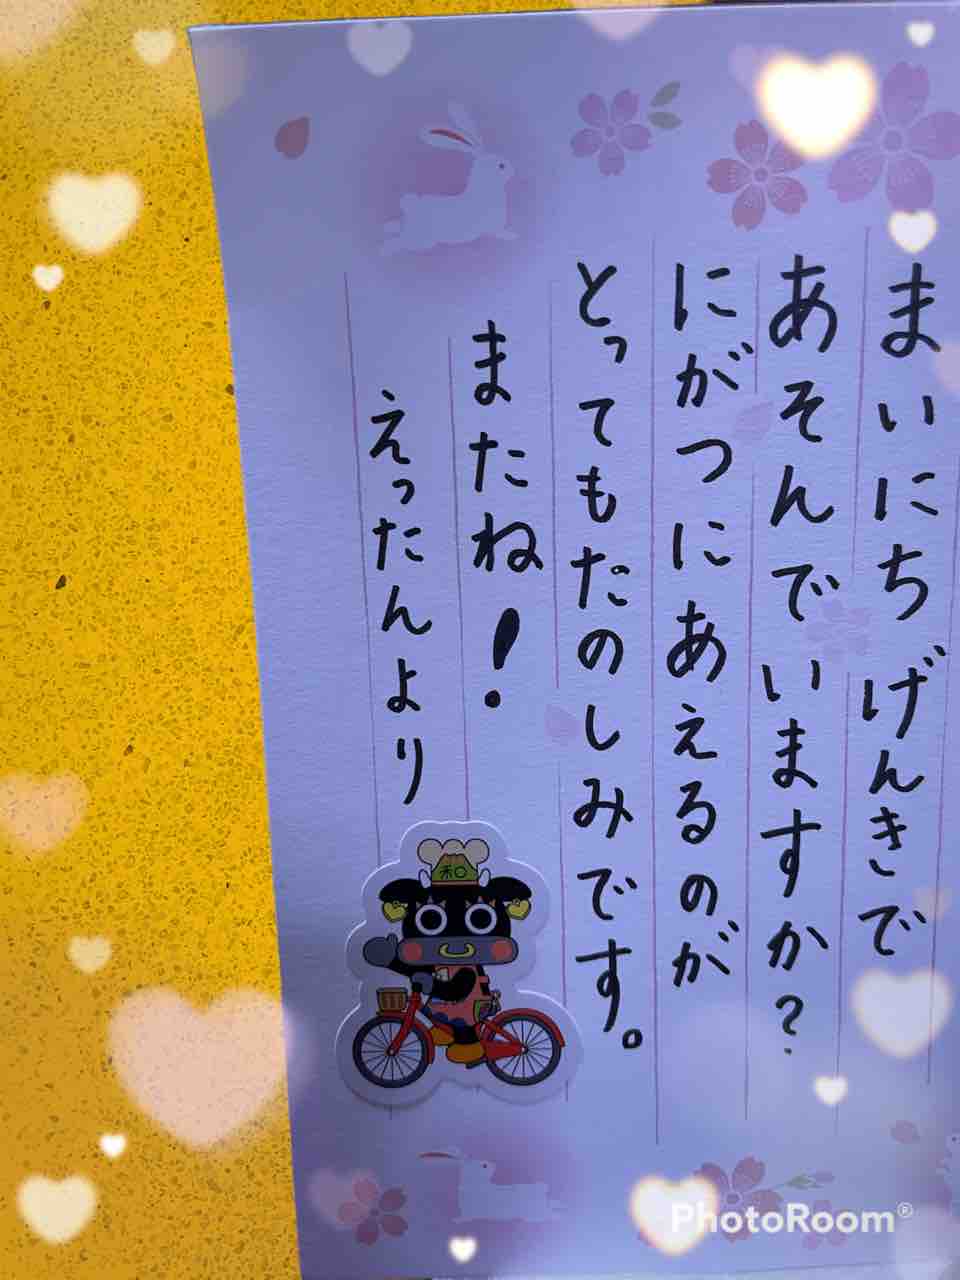 まいにちげんきで
あそんでいますか?
にがつにあえるのが
とってもたのしみです。
またね!
えったんより
和
PhotoRoom®